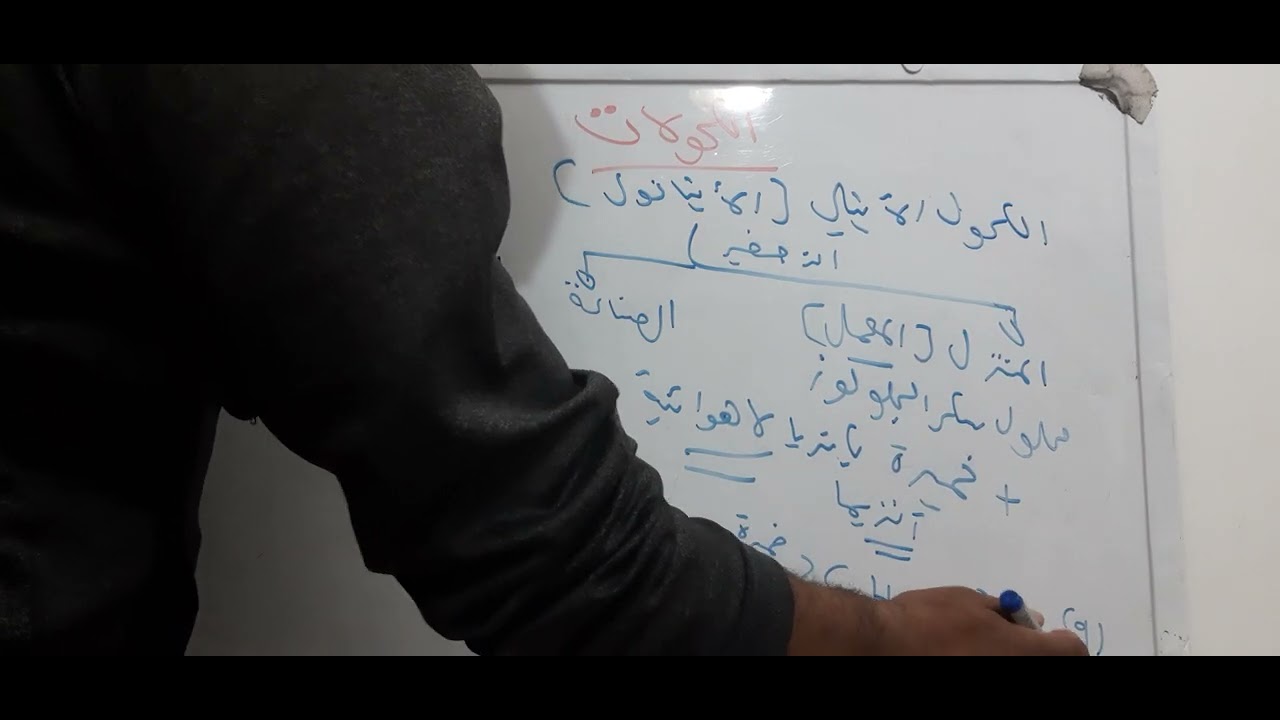 الكحولات
الكحول الأيثيلي (الأيثانول)
التحضير
المنزل (المعمل) الصناعة
محلول سكر الجلوكوز
+ خميرة بانزيما لاهوائية
أنزيما
خميرة